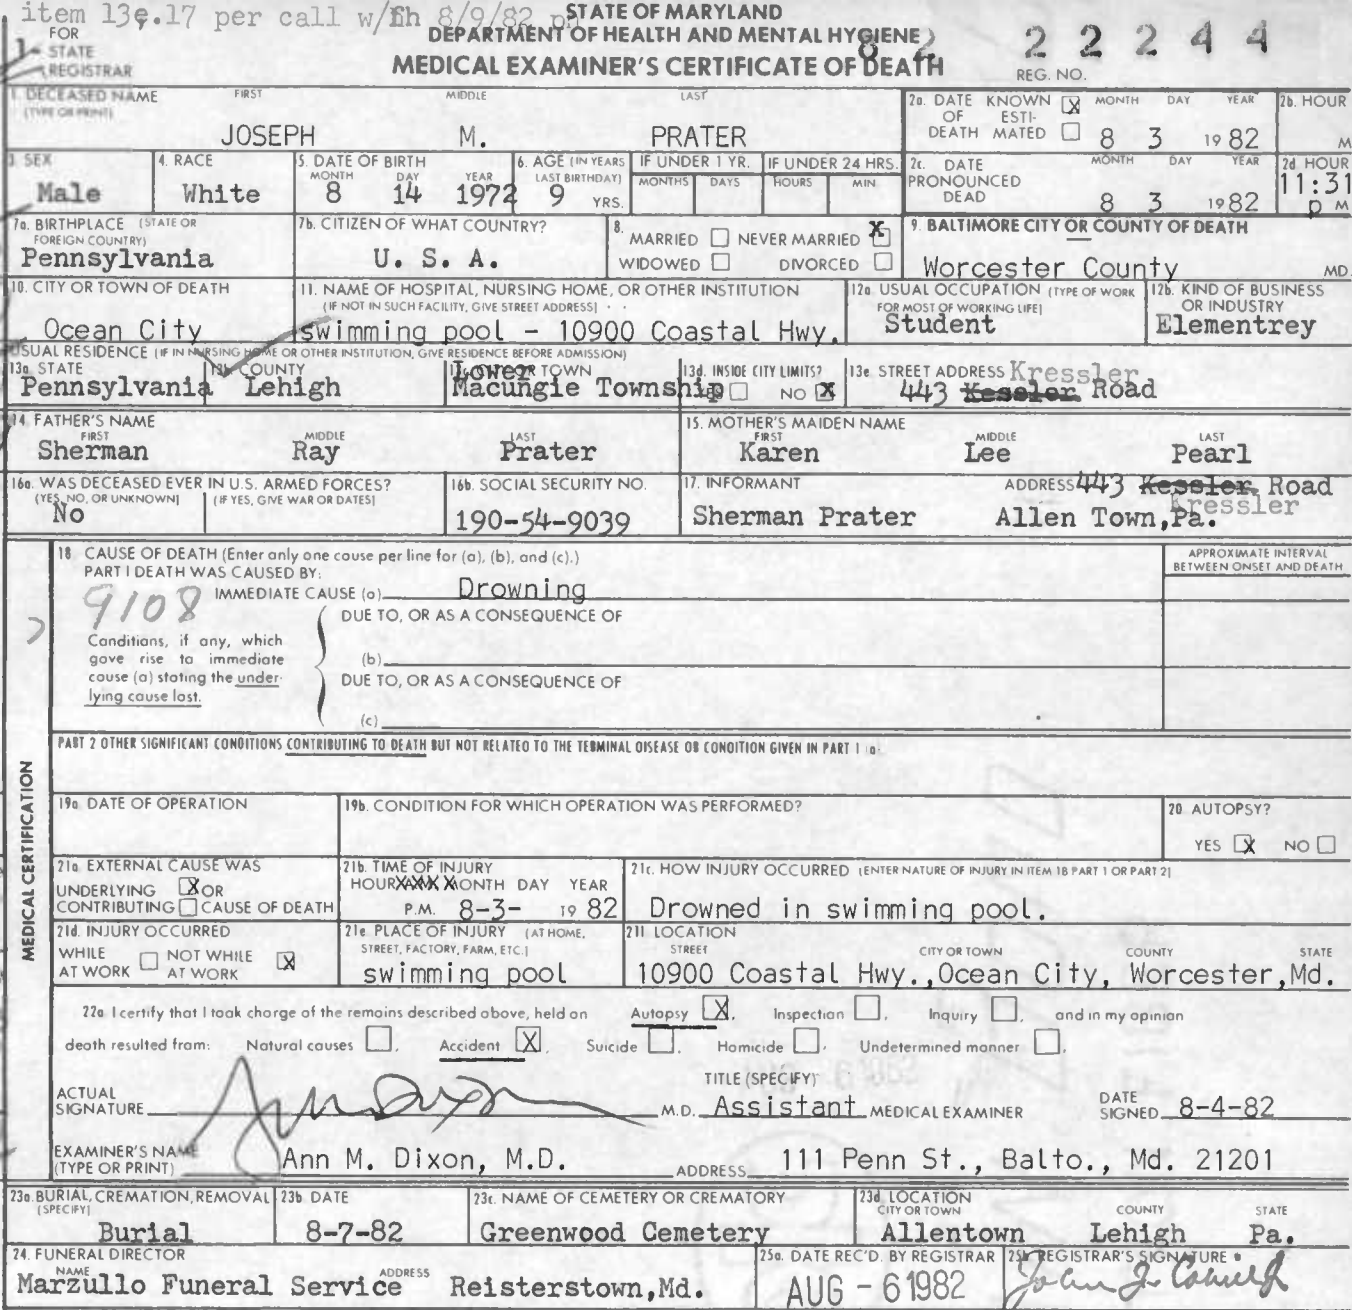 item 13e.17 per call w/fh 8/9/82
STATE OF MARYLAND
DEPARTMENT OF HEALTH AND MENTAL HYGIENE
MEDICAL EXAMINER'S CERTIFICATE OF DEATH
FOR
1- STATE
REGISTRAR
82 22244
REG. NO.
1. DECEASED NAME FIRST MIDDLE LAST
(TYPE OR PRINT)
JOSEPH M. PRATER
2a. DATE KNOWN X MONTH DAY YEAR
OF ESTI-
DEATH MATED 8 3 1982
2b. HOUR
M
3. SEX
Male
4. RACE
White
5. DATE OF BIRTH
MONTH DAY YEAR
8 14 1972
6. AGE (IN YEARS
LAST BIRTHDAY)
9 YRS.
IF UNDER 1 YR.
MONTHS DAYS
IF UNDER 24 HRS.
HOURS MIN
2c. DATE MONTH DAY YEAR
PRONOUNCED
DEAD 8 3 1982
2d HOUR
11:31
p M
7a. BIRTHPLACE (STATE OR
FOREIGN COUNTRY)
Pennsylvania
7b. CITIZEN OF WHAT COUNTRY?
U. S. A.
8.
MARRIED NEVER MARRIED X
WIDOWED DIVORCED
9. BALTIMORE CITY OR COUNTY OF DEATH
Worcester County MD.
10. CITY OR TOWN OF DEATH
Ocean City
11. NAME OF HOSPITAL, NURSING HOME, OR OTHER INSTITUTION
(IF NOT IN SUCH FACILITY, GIVE STREET ADDRESS)
swimming pool - 10900 Coastal Hwy.
12a. USUAL OCCUPATION (TYPE OF WORK
FOR MOST OF WORKING LIFE)
Student
12b. KIND OF BUSINESS
OR INDUSTRY
Elementrey
USUAL RESIDENCE (IF IN NURSING HOME OR OTHER INSTITUTION, GIVE RESIDENCE BEFORE ADMISSION)
13a STATE
Pennsylvania
13b COUNTY
Lehigh
13c CITY OR TOWN
Lower
Macungie Township
13d. INSIDE CITY LIMITS?
NO X
13e. STREET ADDRESS Kressler
443 Kessler Road
14. FATHER'S NAME
FIRST MIDDLE LAST
Sherman Ray Prater
15. MOTHER'S MAIDEN NAME
FIRST MIDDLE LAST
Karen Lee Pearl
16a. WAS DECEASED EVER IN U.S. ARMED FORCES?
(YES, NO, OR UNKNOWN) (IF YES, GIVE WAR OR DATES)
No
16b. SOCIAL SECURITY NO.
190-54-9039
17. INFORMANT
Sherman Prater
ADDRESS 443 Kessler Road
Kressler
Allen Town,Pa.
MEDICAL CERTIFICATION
18. CAUSE OF DEATH (Enter only one cause per line for (a), (b), and (c).)
PART I DEATH WAS CAUSED BY:
APPROXIMATE INTERVAL
BETWEEN ONSET AND DEATH
9108
IMMEDIATE CAUSE (a) Drowning
DUE TO, OR AS A CONSEQUENCE OF
Conditions, if any, which
gave rise to immediate
cause (a) stating the under-
lying cause last.
(b)
DUE TO, OR AS A CONSEQUENCE OF
(c)
PART 2 OTHER SIGNIFICANT CONDITIONS CONTRIBUTING TO DEATH BUT NOT RELATED TO THE TERMINAL DISEASE OR CONDITION GIVEN IN PART 1 (a)
19a DATE OF OPERATION
19b. CONDITION FOR WHICH OPERATION WAS PERFORMED?
20 AUTOPSY?
YES X NO
21a EXTERNAL CAUSE WAS
UNDERLYING X OR
CONTRIBUTING CAUSE OF DEATH
21b. TIME OF INJURY
HOUR XXXX MONTH DAY YEAR
P.M. 8-3- 1982
21c. HOW INJURY OCCURRED (ENTER NATURE OF INJURY IN ITEM 18 PART 1 OR PART 2)
Drowned in swimming pool.
21d. INJURY OCCURRED
WHILE NOT WHILE X
AT WORK AT WORK
21e PLACE OF INJURY (AT HOME,
STREET, FACTORY, FARM, ETC.)
swimming pool
21f LOCATION
STREET CITY OR TOWN COUNTY STATE
10900 Coastal Hwy.,Ocean City, Worcester,Md.
22a I certify that I took charge of the remains described above, held an Autopsy X, Inspection , Inquiry , and in my opinion
death resulted from: Natural causes , Accident X, Suicide , Homicide , Undetermined manner .
ACTUAL
SIGNATURE Ann Dixon M.D.
TITLE (SPECIFY)
Assistant MEDICAL EXAMINER
DATE
SIGNED 8-4-82
EXAMINER'S NAME
(TYPE OR PRINT) Ann M. Dixon, M.D.
ADDRESS 111 Penn St., Balto., Md. 21201
23a. BURIAL, CREMATION, REMOVAL
(SPECIFY)
Burial
23b DATE
8-7-82
23c. NAME OF CEMETERY OR CREMATORY
Greenwood Cemetery
23d. LOCATION
CITY OR TOWN COUNTY STATE
Allentown Lehigh Pa.
24. FUNERAL DIRECTOR
NAME ADDRESS
Marzullo Funeral Service Reisterstown,Md.
25a. DATE REC'D. BY REGISTRAR
AUG - 6 1982
25b REGISTRAR'S SIGNATURE